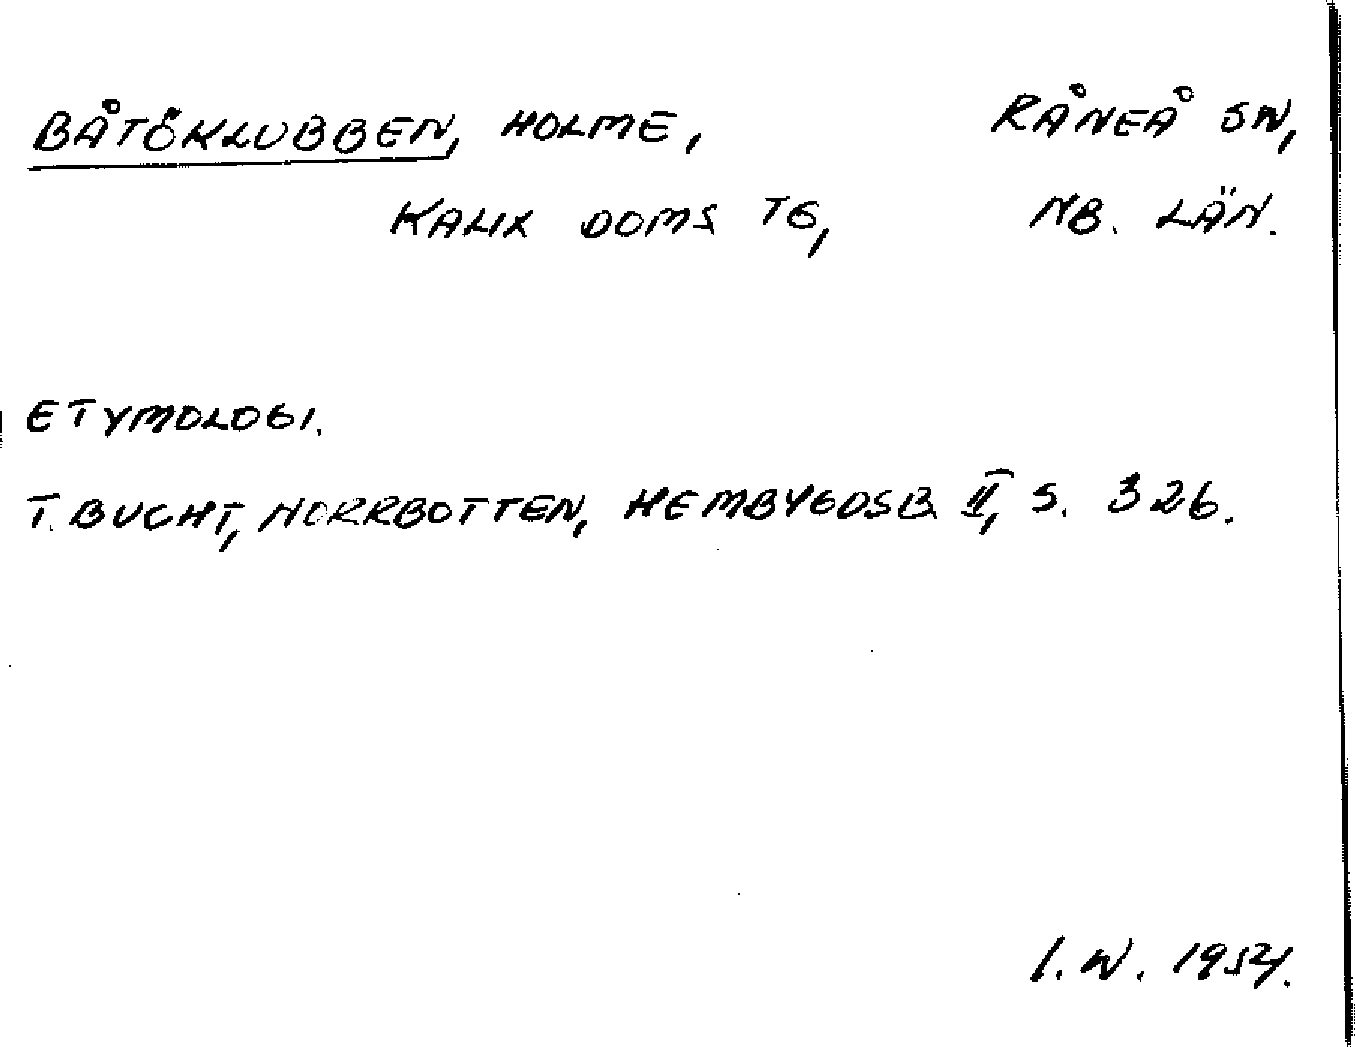 BÅTÖKLUBBEN, HOLME, RÅNEÅ SN,
KALIX DOMS TG, NB. LÄN.
ETYMOLOGI.
T. BUCHT, NORRBOTTEN, HEMBYGDSB. II, S. 326.
I. W. 1954.